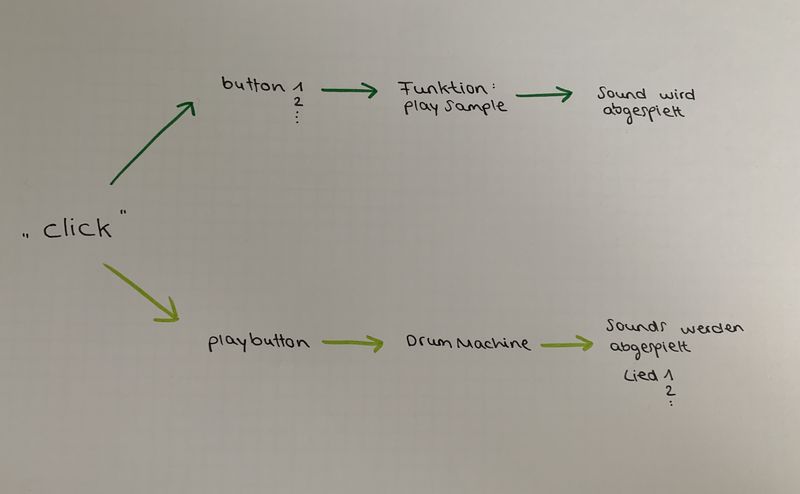 button 1
2
⋮
Funktion:
play Sample
Sound wird
abgespielt
„click"
playbutton
DrumMachine
Sounds werden
abgespielt
Lied 1
2
: